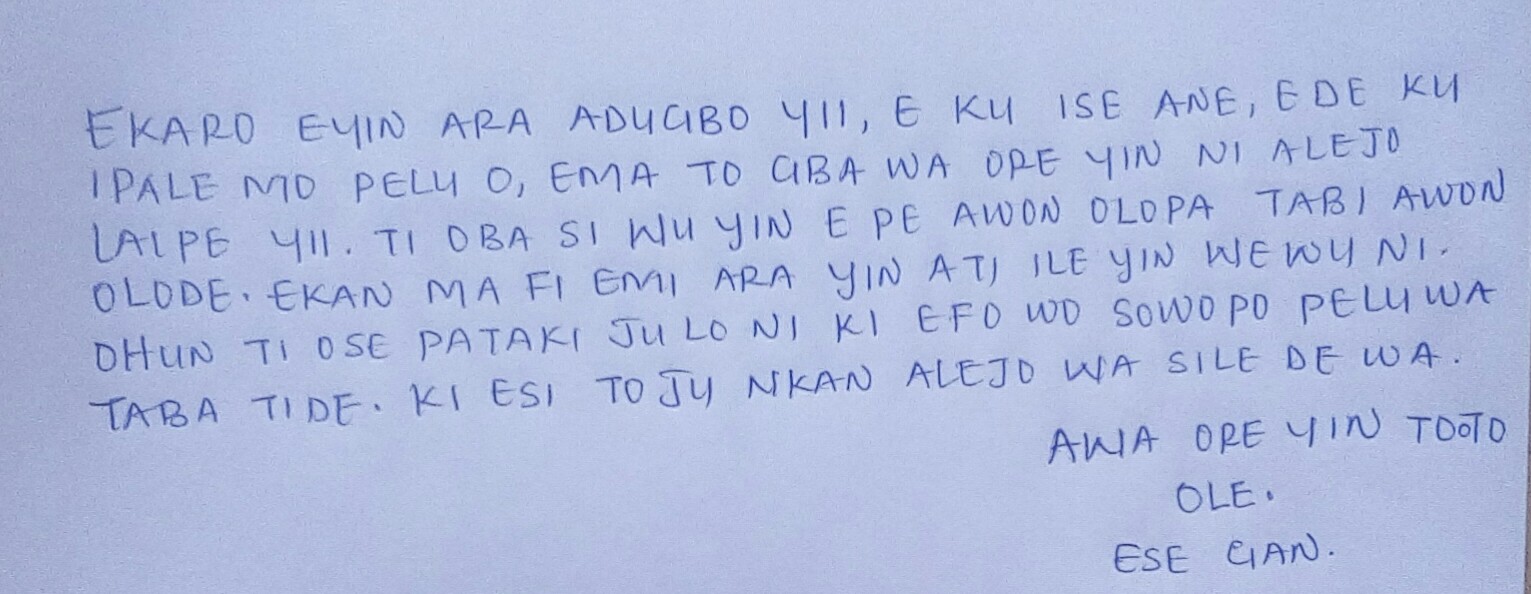 EKARO EYIN ARA ADUGBO YII, E KU ISE ANE, EDE KU
IPALE MO PELU O, EMA TO GBA WA ORE YIN NI ALEJO
LAIPE YII. TI OBA SI WU YIN E PE AWON OLOPA TABI AWON
OLODE. EKAN MA FI EMI ARA YIN ATI ILE YIN WEWU NI.
OHUN TI OSE PATAKI JU LO NI KI EFO WO SOWOPO PELU WA
TABA TI DE. KI ESI TOJU NKAN ALEJO WA SILE DE WA.
AWA ORE YIN TOOTO
OLE.
ESE GAN.